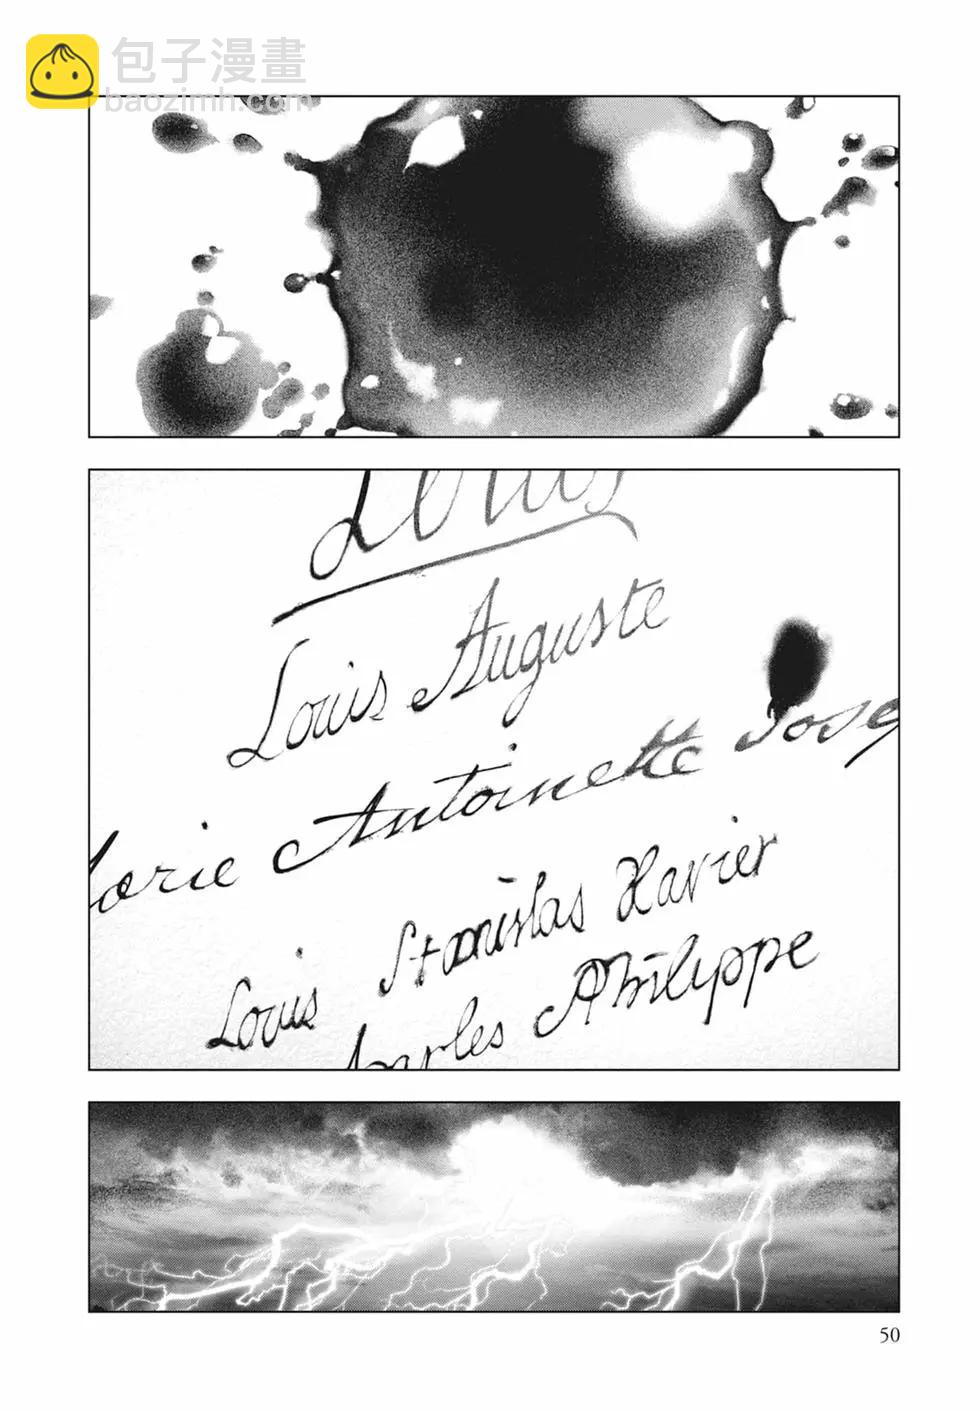 包子漫畫
baozimh.com
Louis
Louis Auguste
Marie Antoinette Josep
Louis Stanislas Xavier
Charles Philippe
50